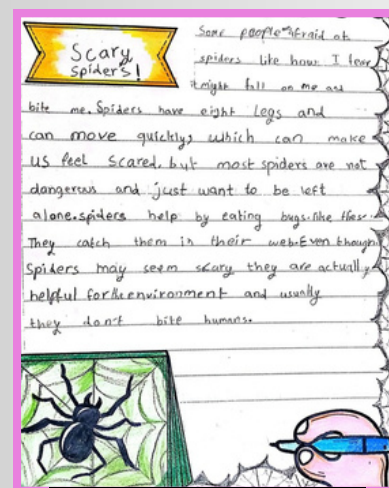 Scary
spiders!
Some people afraid of
spiders like how I fear
it might fall on me and
bite me. Spiders have eight legs and
can move quickly, which can make
us feel scared. but most spiders are not
dangerous and just want to be left
alone. spiders help by eating bugs. like flies.
They catch them in their web. Even though
Spiders may seem scary they are actually
helpful for the environment and usually
they don't bite humans.